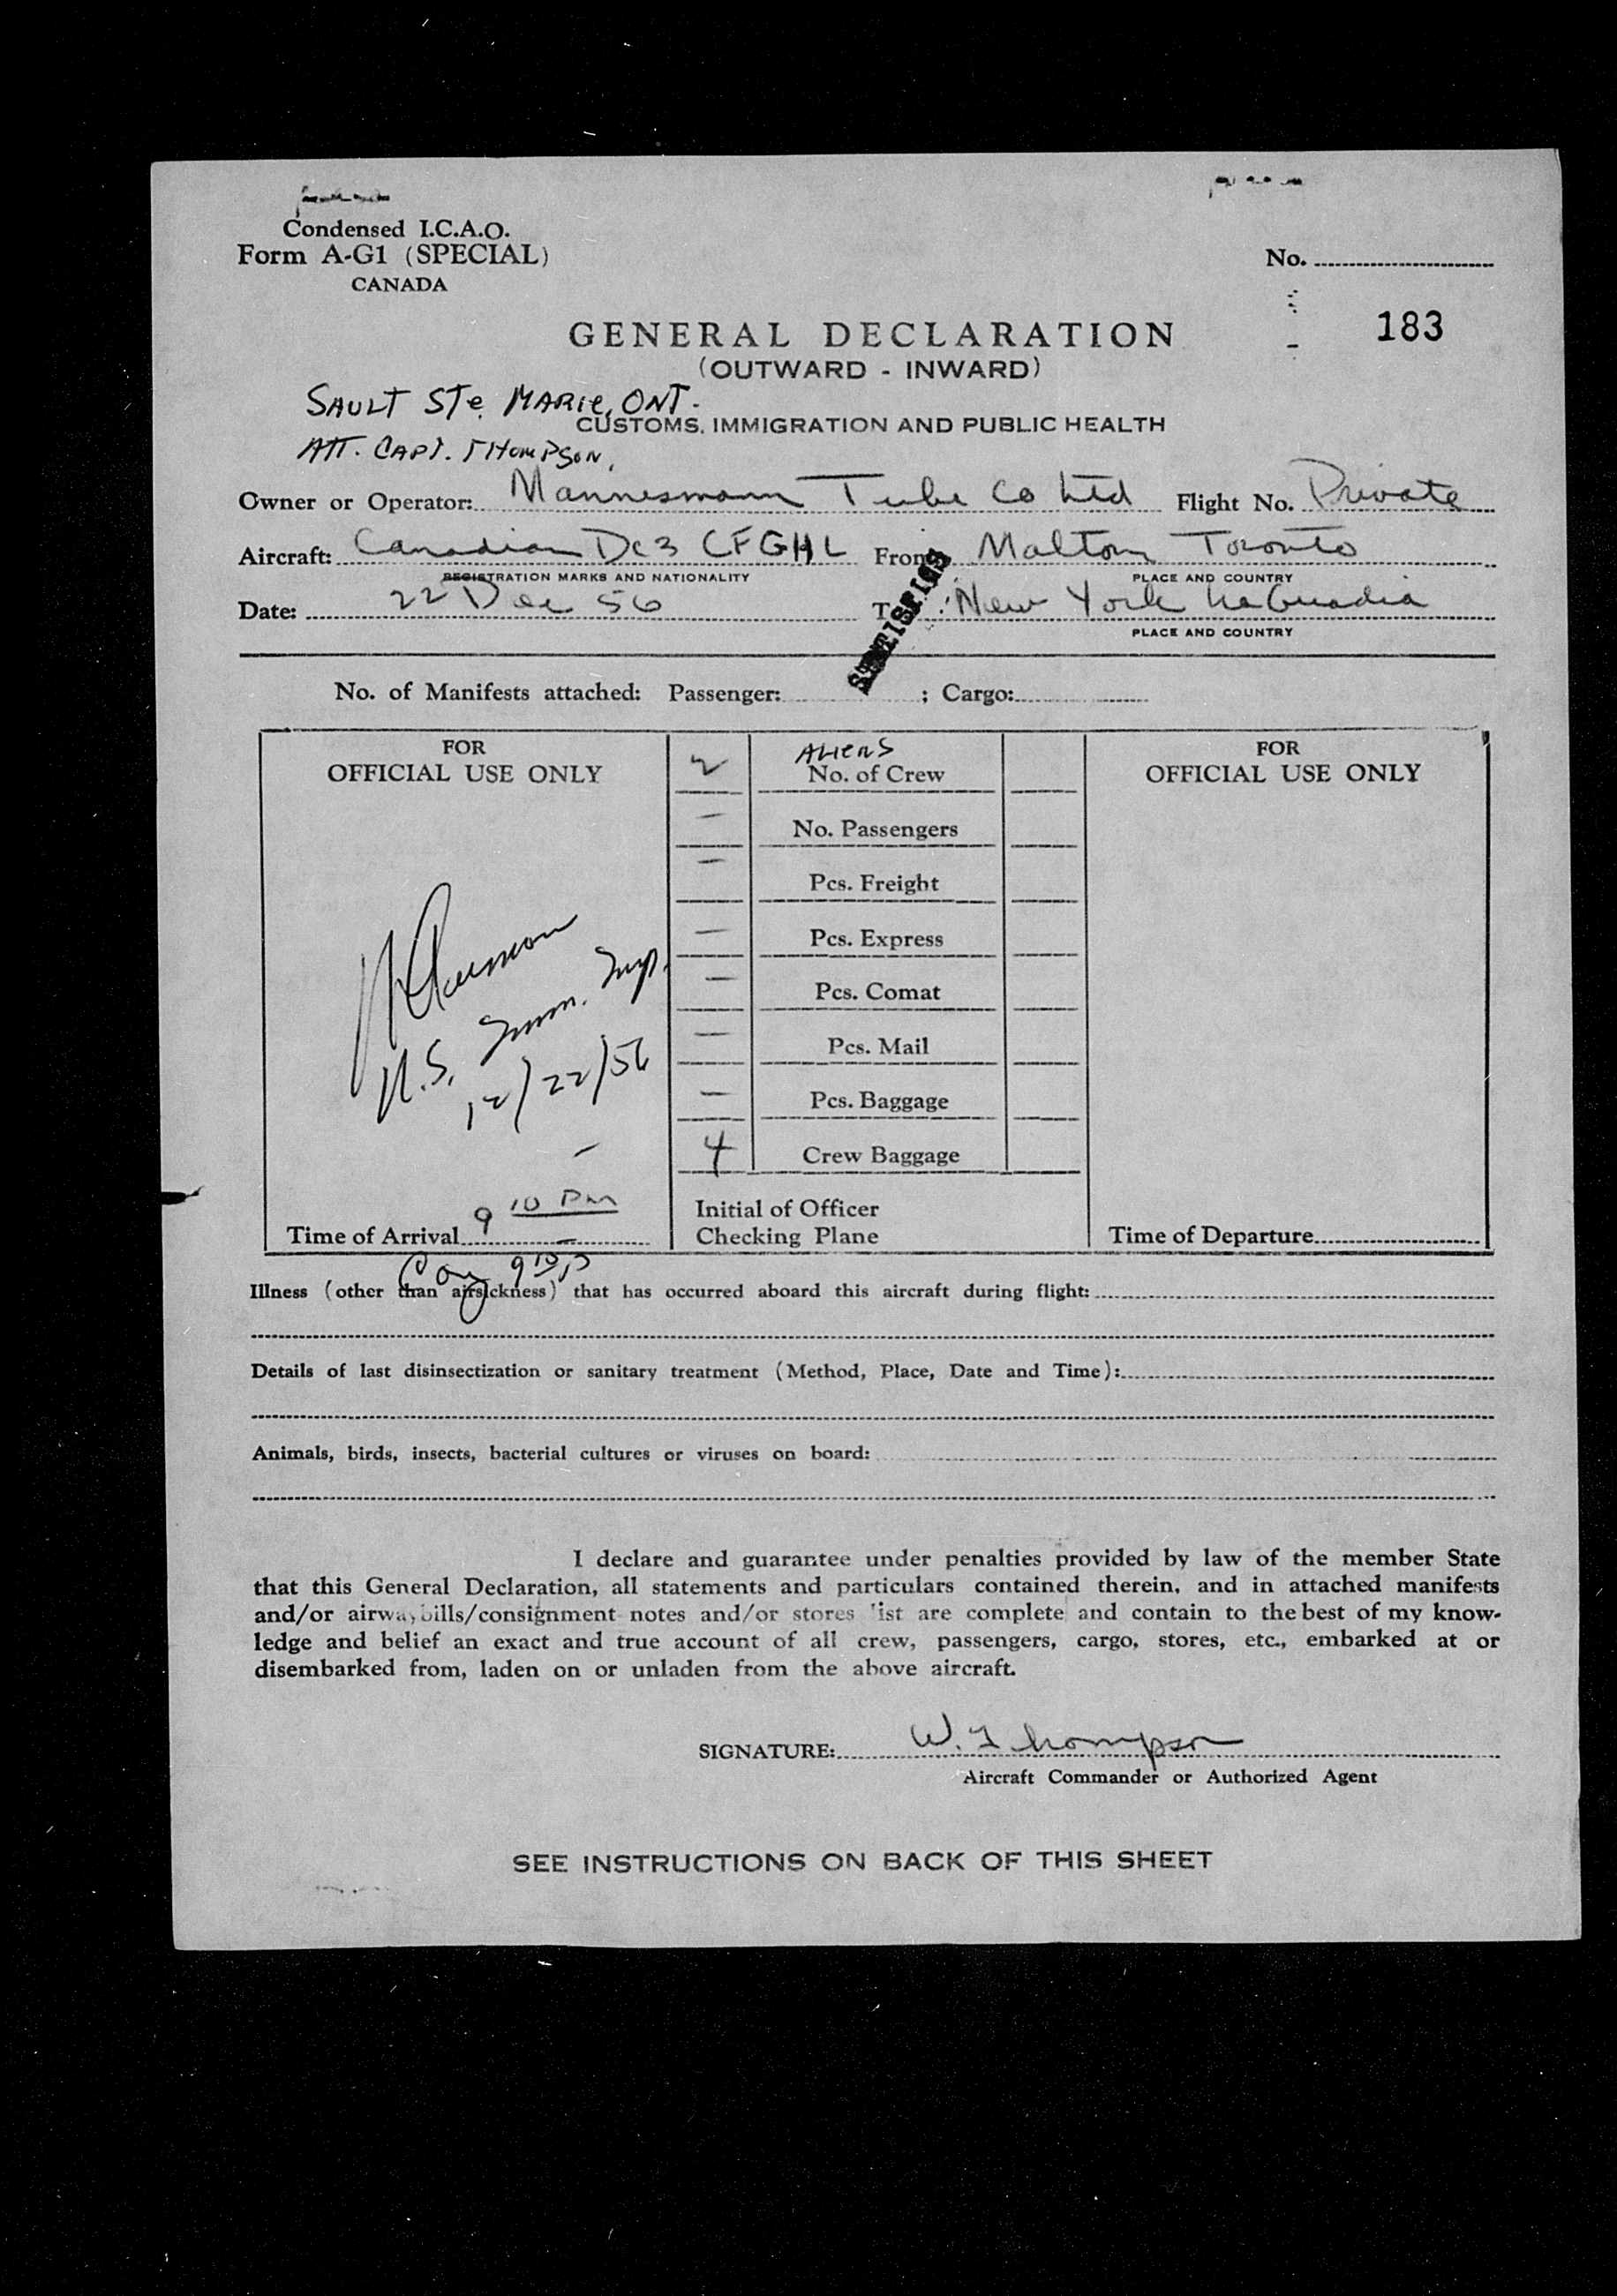 Condensed I.C.A.O.
Form A-G1 (SPECIAL)
CANADA
No.
183
GENERAL DECLARATION
(OUTWARD - INWARD)
SAULT STe. MARIE, ONT.
CUSTOMS, IMMIGRATION AND PUBLIC HEALTH
ATT. CAPT. THOMPSON,
Owner or Operator: Mannesmann Tube Co Ltd Flight No. Private
Aircraft: Canadian Dc3 CFGHL From Malton Toronto
REGISTRATION MARKS AND NATIONALITY PLACE AND COUNTRY
Date: 22 Dec 56 T : New York LaGuadia
PLACE AND COUNTRY
STATISTICS
No. of Manifests attached: Passenger: ; Cargo:
FOR
OFFICIAL USE ONLY
2 ALIENS
No. of Crew
FOR
OFFICIAL USE ONLY
— No. Passengers
— Pcs. Freight
— Pcs. Express
— Pcs. Comat
— Pcs. Mail
— Pcs. Baggage
4 Crew Baggage
U.S. Imm. Insp.
12/22/56
Time of Arrival 9 10 Pm
Initial of Officer
Checking Plane
Time of Departure
9 10 P
Illness (other than airsickness) that has occurred aboard this aircraft during flight:
Details of last disinsectization or sanitary treatment (Method, Place, Date and Time):
Animals, birds, insects, bacterial cultures or viruses on board:
I declare and guarantee under penalties provided by law of the member State
that this General Declaration, all statements and particulars contained therein, and in attached manifests
and/or airwaybills/consignment notes and/or stores list are complete and contain to the best of my know-
ledge and belief an exact and true account of all crew, passengers, cargo, stores, etc., embarked at or
disembarked from, laden on or unladen from the above aircraft.
SIGNATURE: W. Thompson
Aircraft Commander or Authorized Agent
SEE INSTRUCTIONS ON BACK OF THIS SHEET